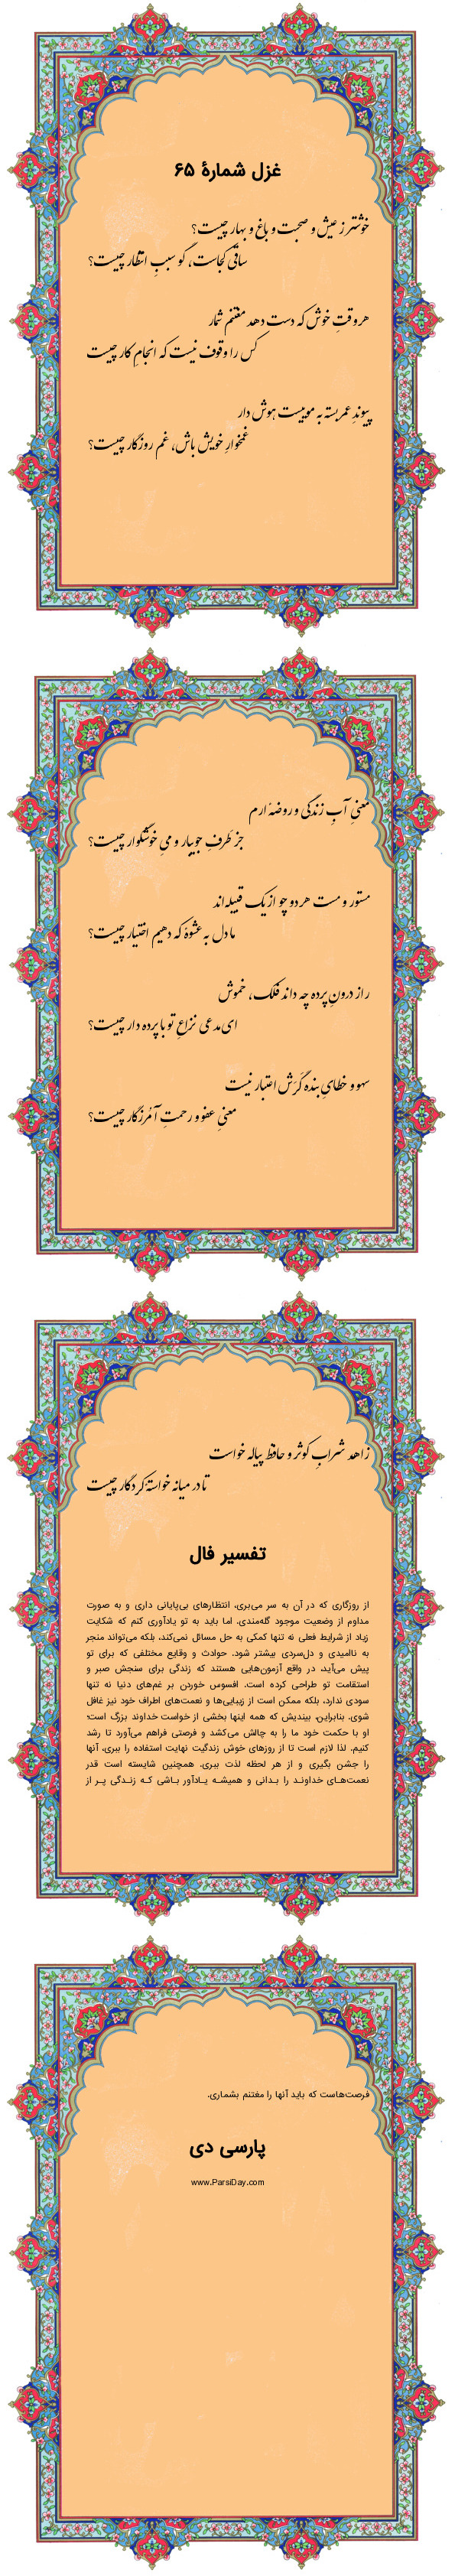 غزل شمارهٔ ۶۵
خوشتر ز عیش و صحبت و باغ و بهار چیست؟
ساقی کجاست، گو سببِ انتظار چیست؟
هر وقتِ خوش که دست دهد مغتنم شمار
کس را وقوف نیست که انجامِ کار چیست
پیوندِ عمر بسته به موییست هوش دار
غمخوارِ خویش باش، غم روزگار چیست؟
معنیِ آبِ زندگی و روضهٔ ارم
جز طَرفِ جویبار و میِ خوشگوار چیست؟
مستور و مست هر دو چو از یک قبیله‌اند
ما دل به عشوهٔ که دهیم اختیار چیست؟
راز درونِ پرده چه داند فلک، خموش
ای مدعی نزاعِ تو با پرده دار چیست؟
سهو و خطایِ بنده گَرَش اعتبار نیست
معنیِ عفو و رحمتِ آمُرزگار چیست؟
زاهد شرابِ کوثر و حافظ پیاله خواست
تا در میانه خواستهٔ کردگار چیست
تفسیر فال
از روزگاری که در آن به سر می‌بری، انتظارهای بی‌پایانی داری و به صورت
مداوم از وضعیت موجود گله‌مندی. اما باید به تو یادآوری کنم که شکایت
زیاد از شرایط فعلی نه تنها کمکی به حل مسائل نمی‌کند، بلکه می‌تواند منجر
به ناامیدی و دل‌سردی بیشتر شود. حوادث و وقایع مختلفی که برای تو
پیش می‌آید، در واقع آزمون‌هایی هستند که زندگی برای سنجش صبر و
استقامت تو طراحی کرده است. افسوس خوردن بر غم‌های دنیا نه تنها
سودی ندارد، بلکه ممکن است از زیبایی‌ها و نعمت‌های اطراف خود نیز غافل
شوی. بنابراین، بیندیش که همه اینها بخشی از خواست خداوند بزرگ است؛
او با حکمت خود ما را به چالش می‌کشد و فرصتی فراهم می‌آورد تا رشد
کنیم. لذا لازم است تا از روزهای خوش زندگیت نهایت استفاده را ببری، آنها
را جشن بگیری و از هر لحظه لذت ببری. همچنین شایسته است قدر
نعمت‌های خداوند را بدانی و همیشه یادآور باشی که زندگی پر از
فرصت‌هاست که باید آنها را مغتنم بشماری.
پارسی دی
www.ParsiDay.com